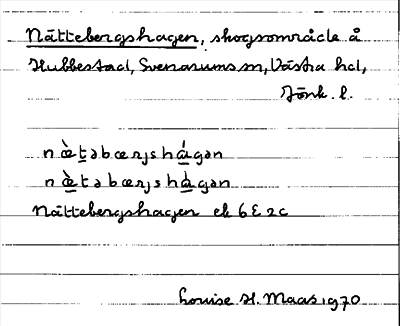 Nättebergshagen, skogsområde å
Hubbestad, Svenarums sn, Västra hd,
Jönk. l.
næ̀təbærjshágən
næ̀təbærjshàgən
Nättebergshagen ek 6E 2c
Louise H. Maas 1970